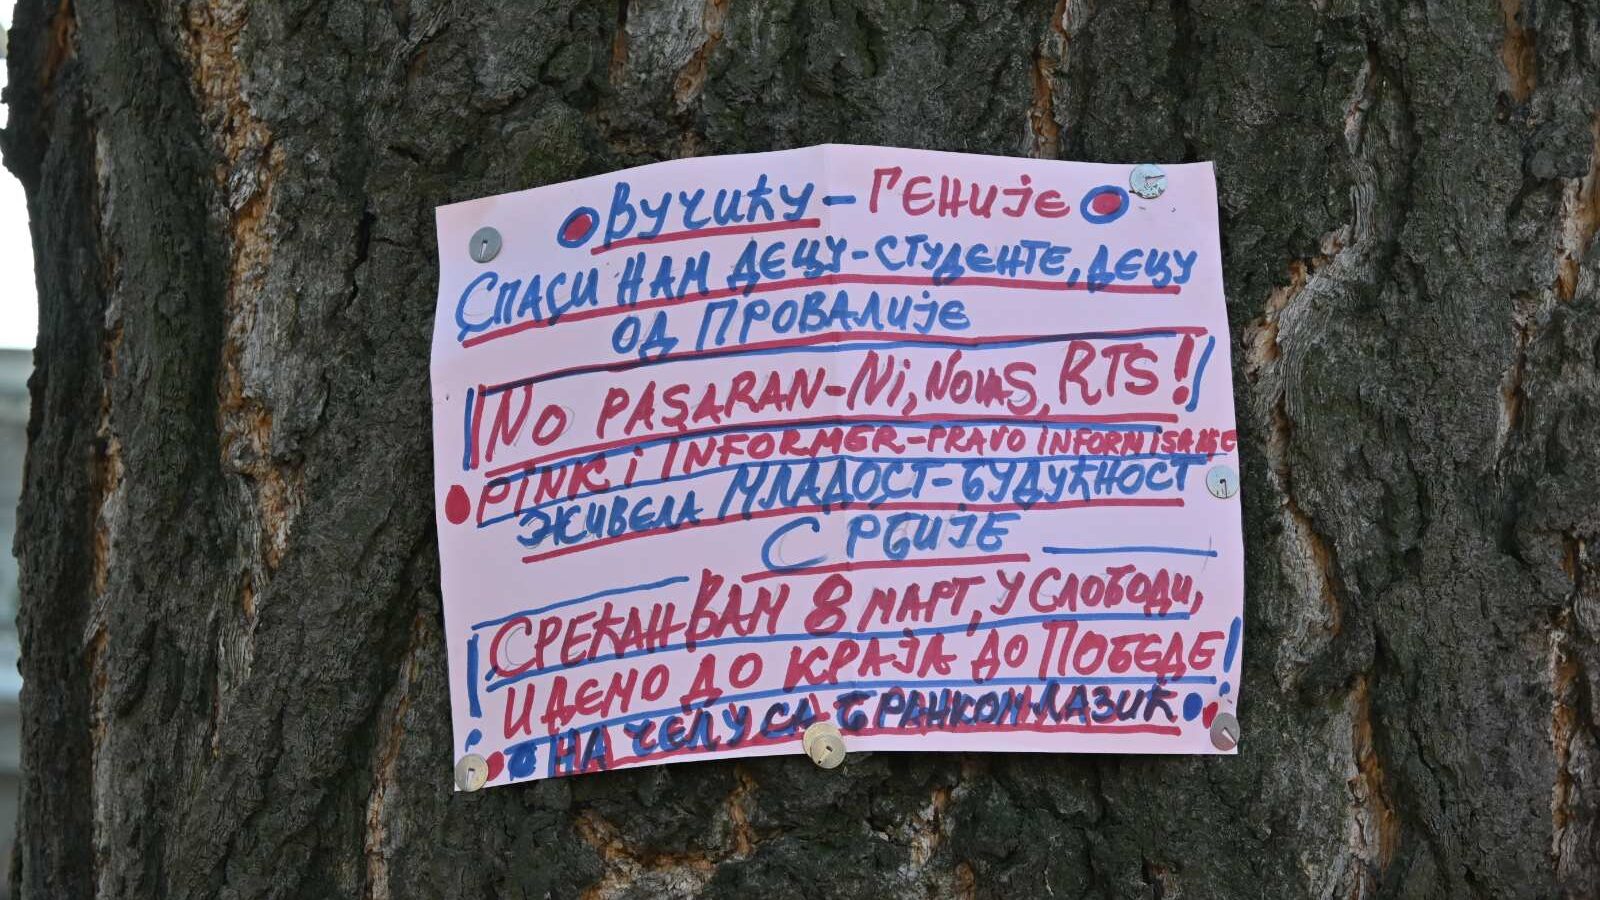 ВУЧИЋУ - ГЕНИЈЕ
СПАСИ НАМ ДЕЦУ-СТУДЕНТЕ, ДЕЦУ
ОД ПРОВАЛИЈЕ
NO PASARAN-NI, NOVAS, RTS!
PINK I INFORMER-PRAVO INFORMISANJE
ЖИВЕЛА МЛАДОСТ-БУДУЋНОСТ
СРБИЈЕ
СРЕЋАН ВАМ 8 МАРТ, У СЛОБОДИ,
ИДЕМО ДО КРАЈА ДО ПОБЕДЕ!
НА ЧЕЛУ СА БРАНКОМ ЛАЗИЋ